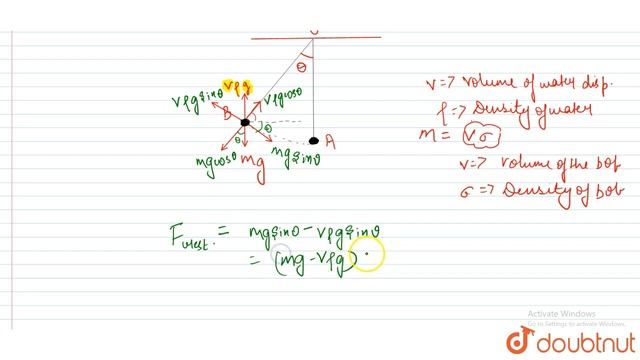 θ
Vρg
Vρg sinθ
Vρg cosθ
B
θ
θ
A
mg cosθ
mg
mg sinθ
V => Volume of water disp.
ρ => Density of water
m = Vσ
V => Volume of the bob
σ => Density of bob
Frest. = mg sinθ - Vρg sinθ
= (mg - Vρg)
Activate Windows
Go to Settings to activate Windows.
doubtnut